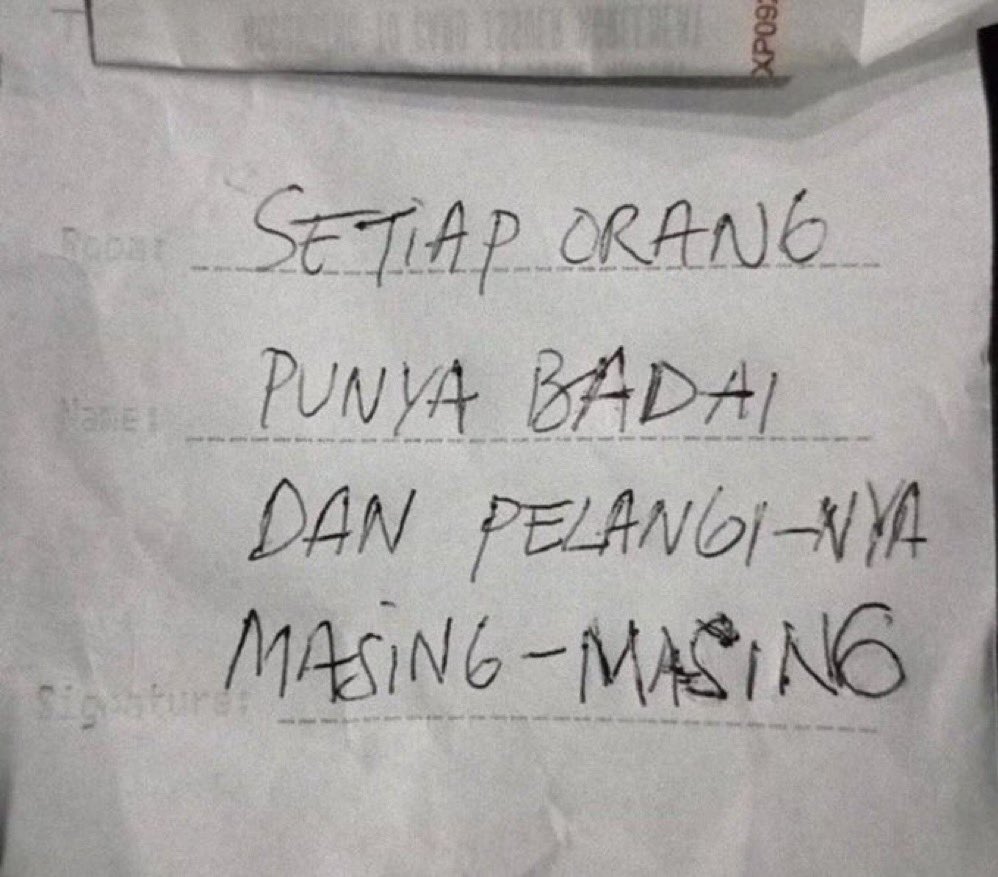 XP093
Room:
SETiAP ORANG
Name:
PUNYA BADAI
DAN PELANGI-NYA
MASiNG-MASiNG
Signature: